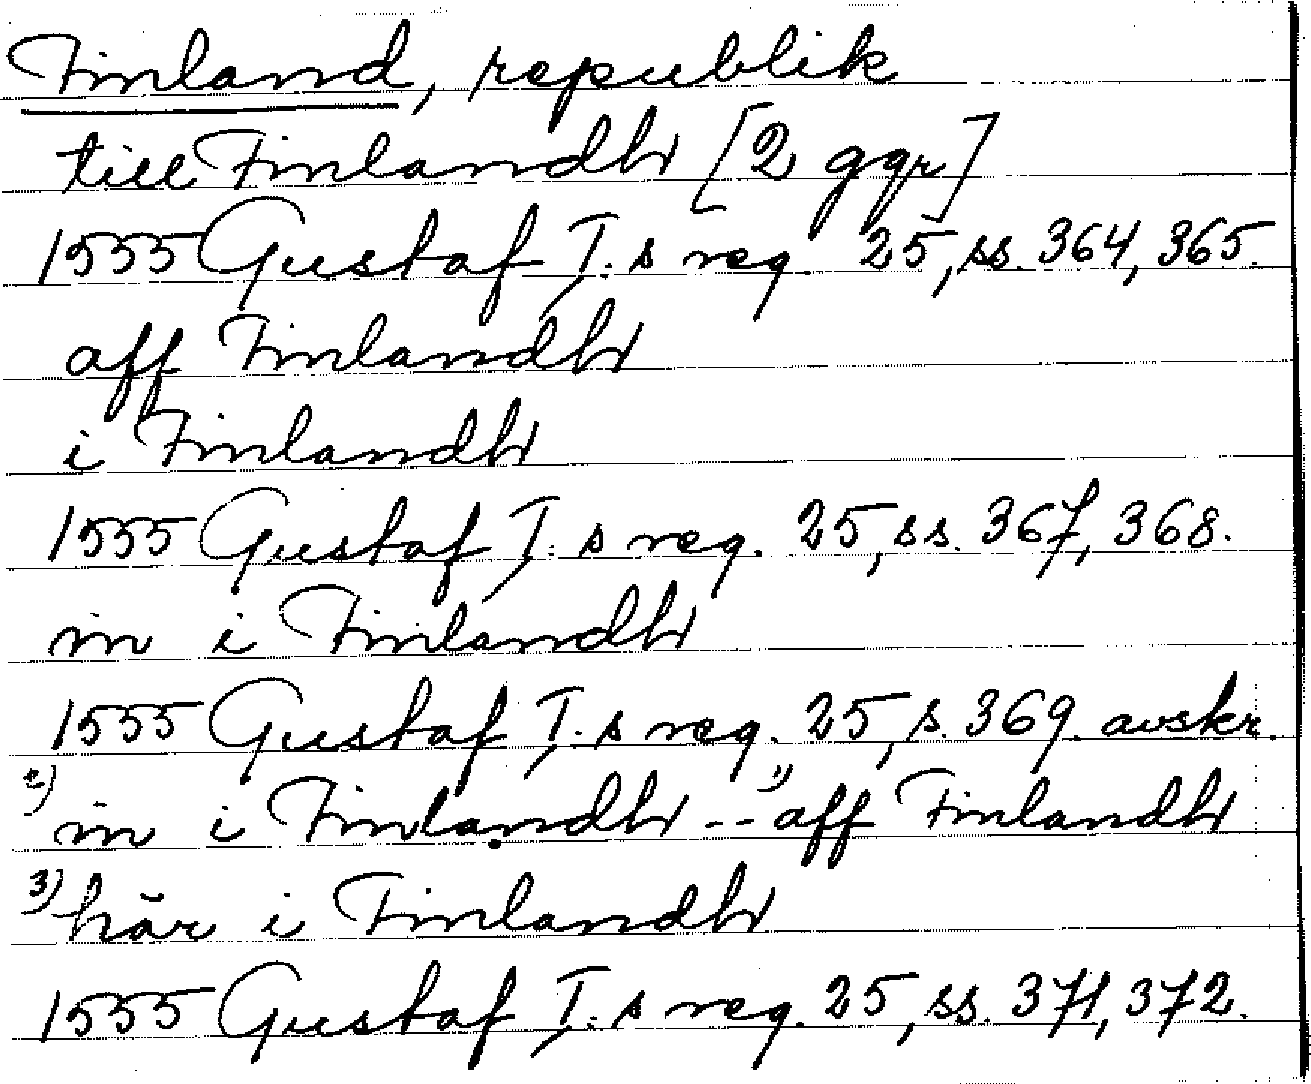 Finland, republik
till Finlandh [2 ggr]
1555 Gustaf I:s reg. 25, ss. 364, 365.
aff Finlandh
i Finlandh
1555 Gustaf I:s reg. 25, ss. 367, 368.
in i Finlandh
1555 Gustaf I:s reg. 25, s. 369. avskr.
2) in i Finlandh -- 1) aff Finlandh
3) här i Finlandh
1555 Gustaf I:s reg. 25, ss. 371, 372.